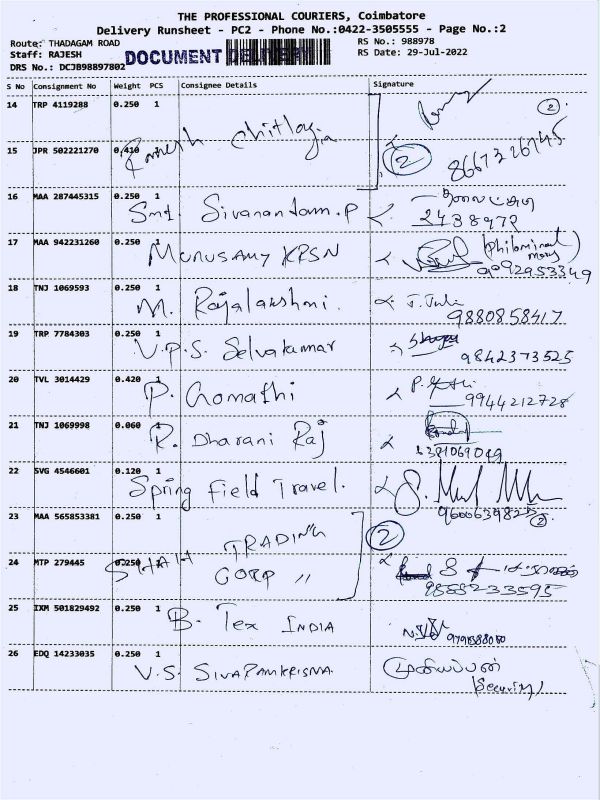 THE PROFESSIONAL COURIERS, Coimbatore
Delivery Runsheet - PC2 - Phone No.:0422-3505555 - Page No.:2
Route: THADAGAM ROAD RS No.: 988978
Staff: RAJESH DOCUMENT DELIVERY RS Date: 29-Jul-2022
DRS No.: DCJB98897802
S No Consignment No Weight PCS Consignee Details Signature
14 TRP 4119288 0.250 1 2
15 JPR 502221270 0.410 Ramesh Chitlogia 2 8667326745
16 MAA 287445315 0.250 1 Smt Sivanandam.P 2438972
17 MAA 942231260 0.250 1 MURUSAMY KRSN (Philominal mary) 9092953349
18 TNJ 1069593 0.250 1 M. Rajalakshmi. J. Juli 9880858417
19 TRP 7784303 0.250 1 V.P.S. Selvakumar 9842373525
20 TVL 3014429 0.420 1 P. Gomathi 9944212728
21 TNJ 1069998 0.060 1 R. Dharani Raj 6381069049
22 SVG 4546601 0.120 1 Spring Field Travel. 9600639825 2
23 MAA 565853381 0.250 1 TRADING 2
24 MTP 279445 0.250 1 SHAH CORP 〃 9888233595
25 IXM 501829492 0.250 1 B. Tex INDIA
26 EDQ 14233035 0.250 1 V.S. SIVARAMKRISNA. முனியப்பன்
(Security)